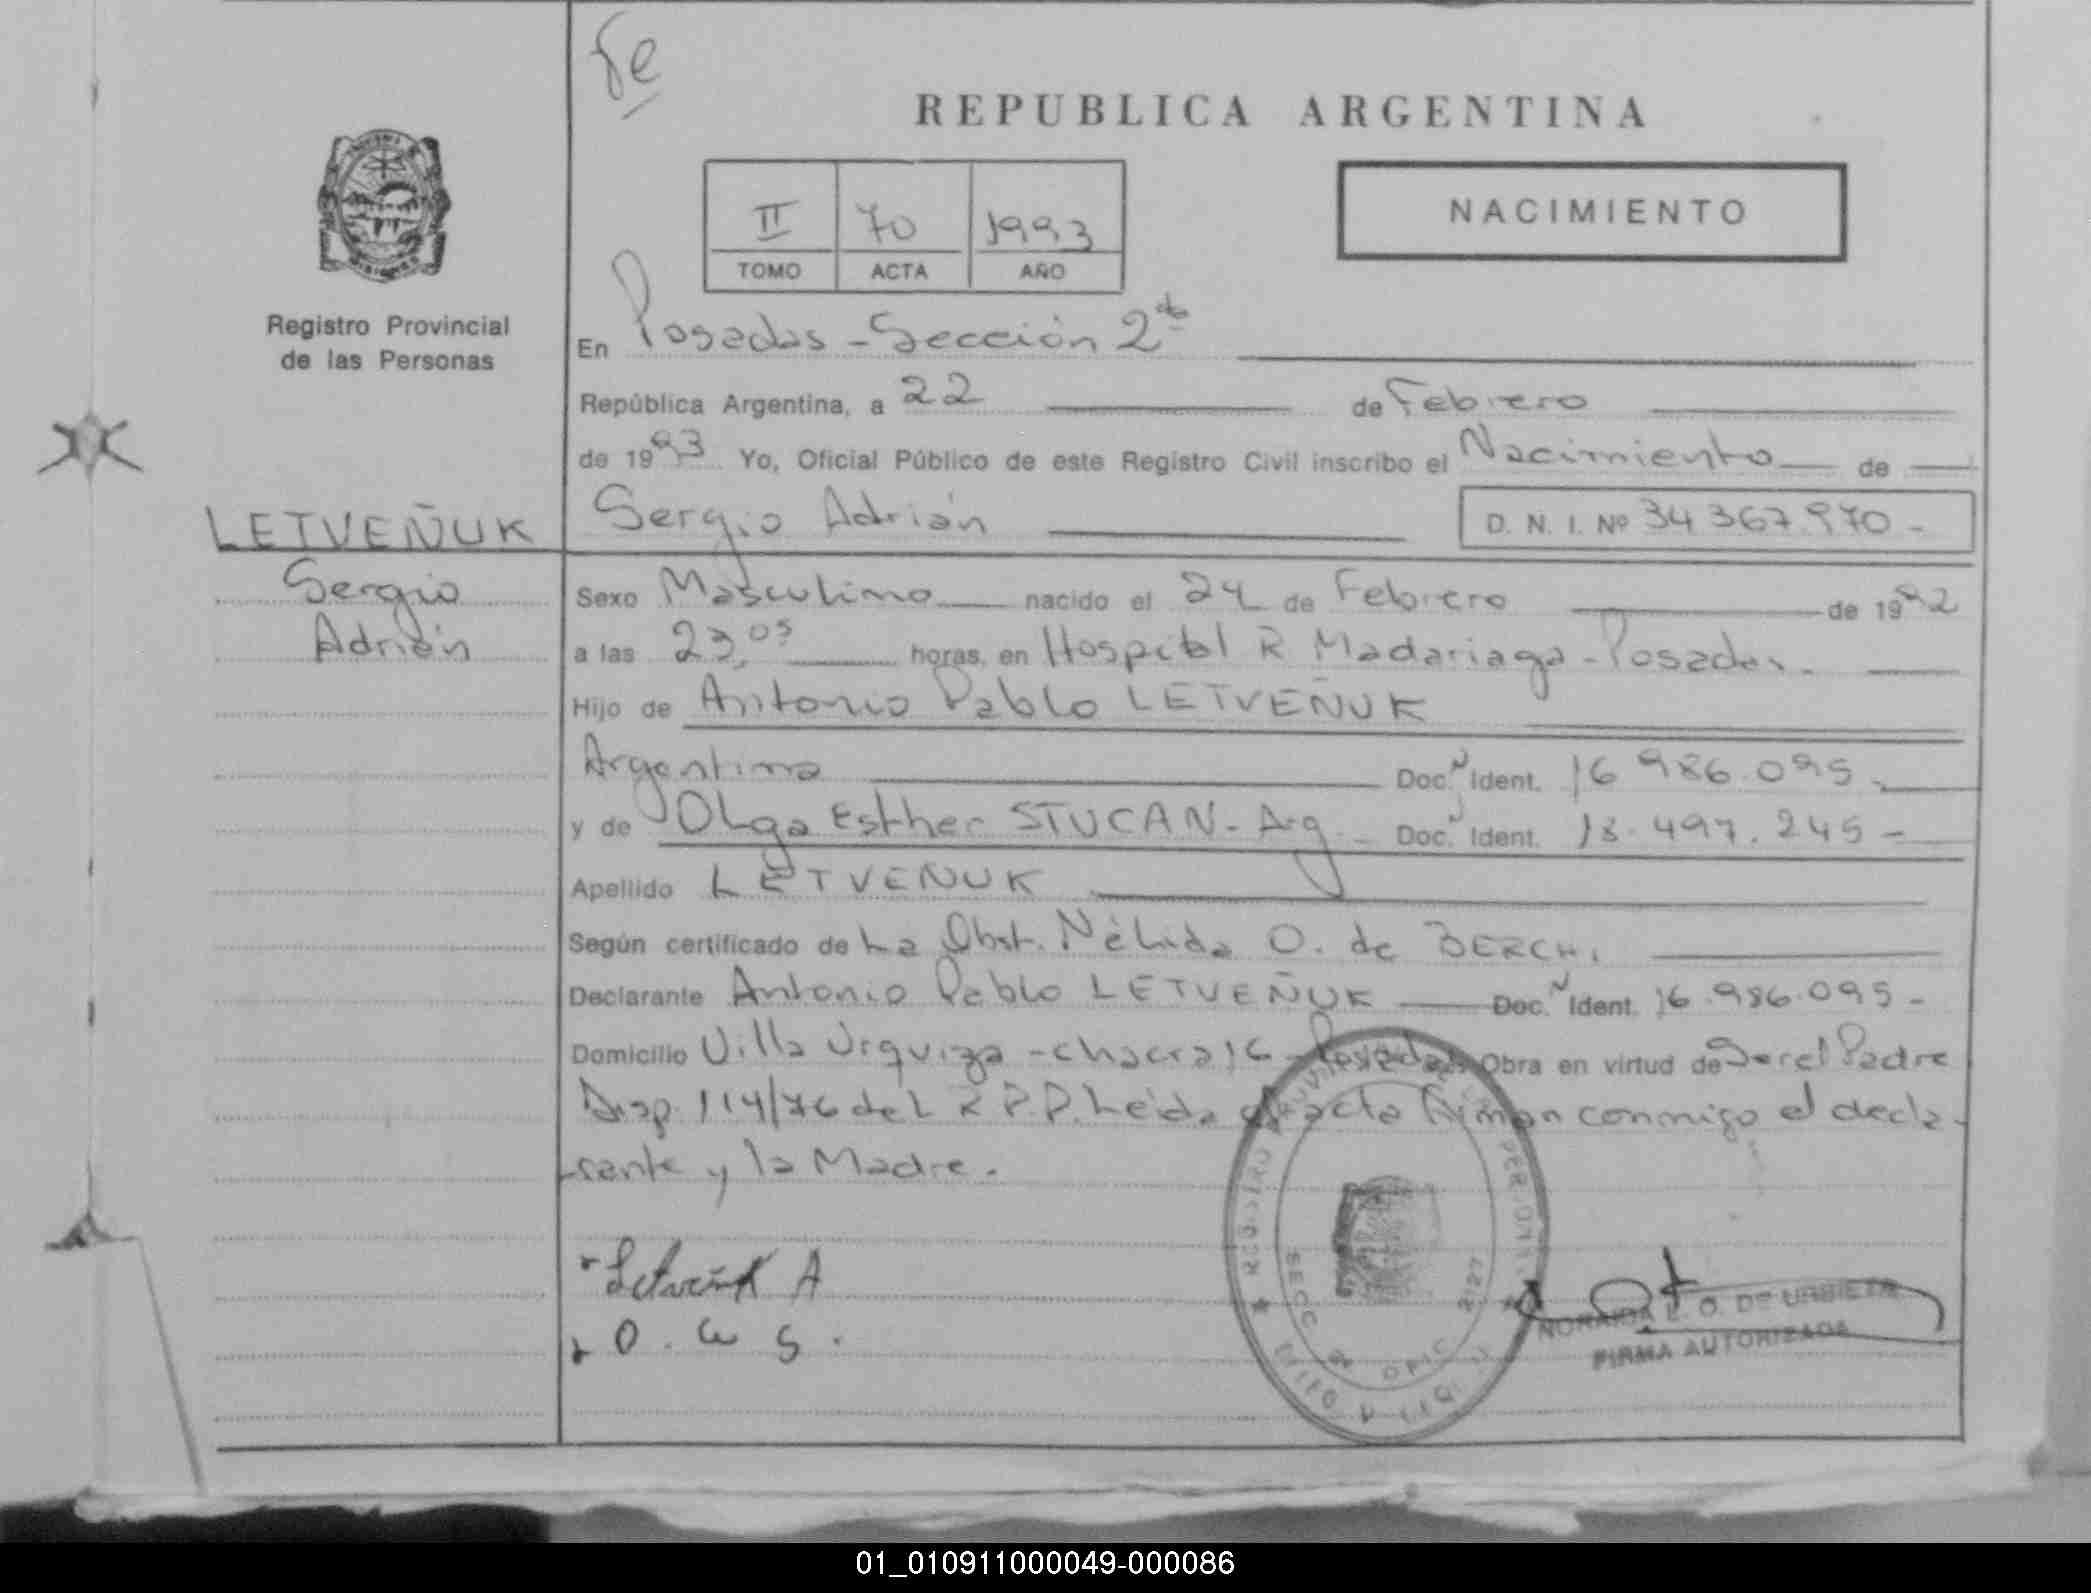 REPUBLICA ARGENTINA
II 70 1993
TOMO ACTA AÑO
NACIMIENTO
Registro Provincial
de las Personas
En Posadas - Sección 2da
República Argentina, a 22 de Febrero
de 1993 Yo, Oficial Público de este Registro Civil inscribo el Nacimiento de
LETVEÑUK
Sergio
Adrián
Sergio Adrián D. N. I. Nº 34 367.970 -
Sexo Masculino nacido el 24 de Febrero de 1992
a las 23,05 horas, en Hospital R Madariaga - Posadas.
Hijo de Antonio Pablo LETVEÑUK
Argentina Doc. N Ident. 16 986.095.
y de Olga Esther STUCAN - Arg Doc. N Ident. 18.497.245 -
Apellido LETVEÑUK
Según certificado de La Obst. Nélida O. de BERCHI
Declarante Antonio Pablo LETVEÑUK Doc. N Ident. 16.986.095 -
Domicilio Villa Urquiza - chacra 16 - Posadas Obra en virtud de Ser el Padre
Disp. 114/76 del R P.P. Leída el acta Firman conmigo el decla-
rante y la Madre.
Letveñuk A
O. E S.
NORAIDA L. O. DE URBIETA
FIRMA AUTORIZADA
01_010911000049-000086